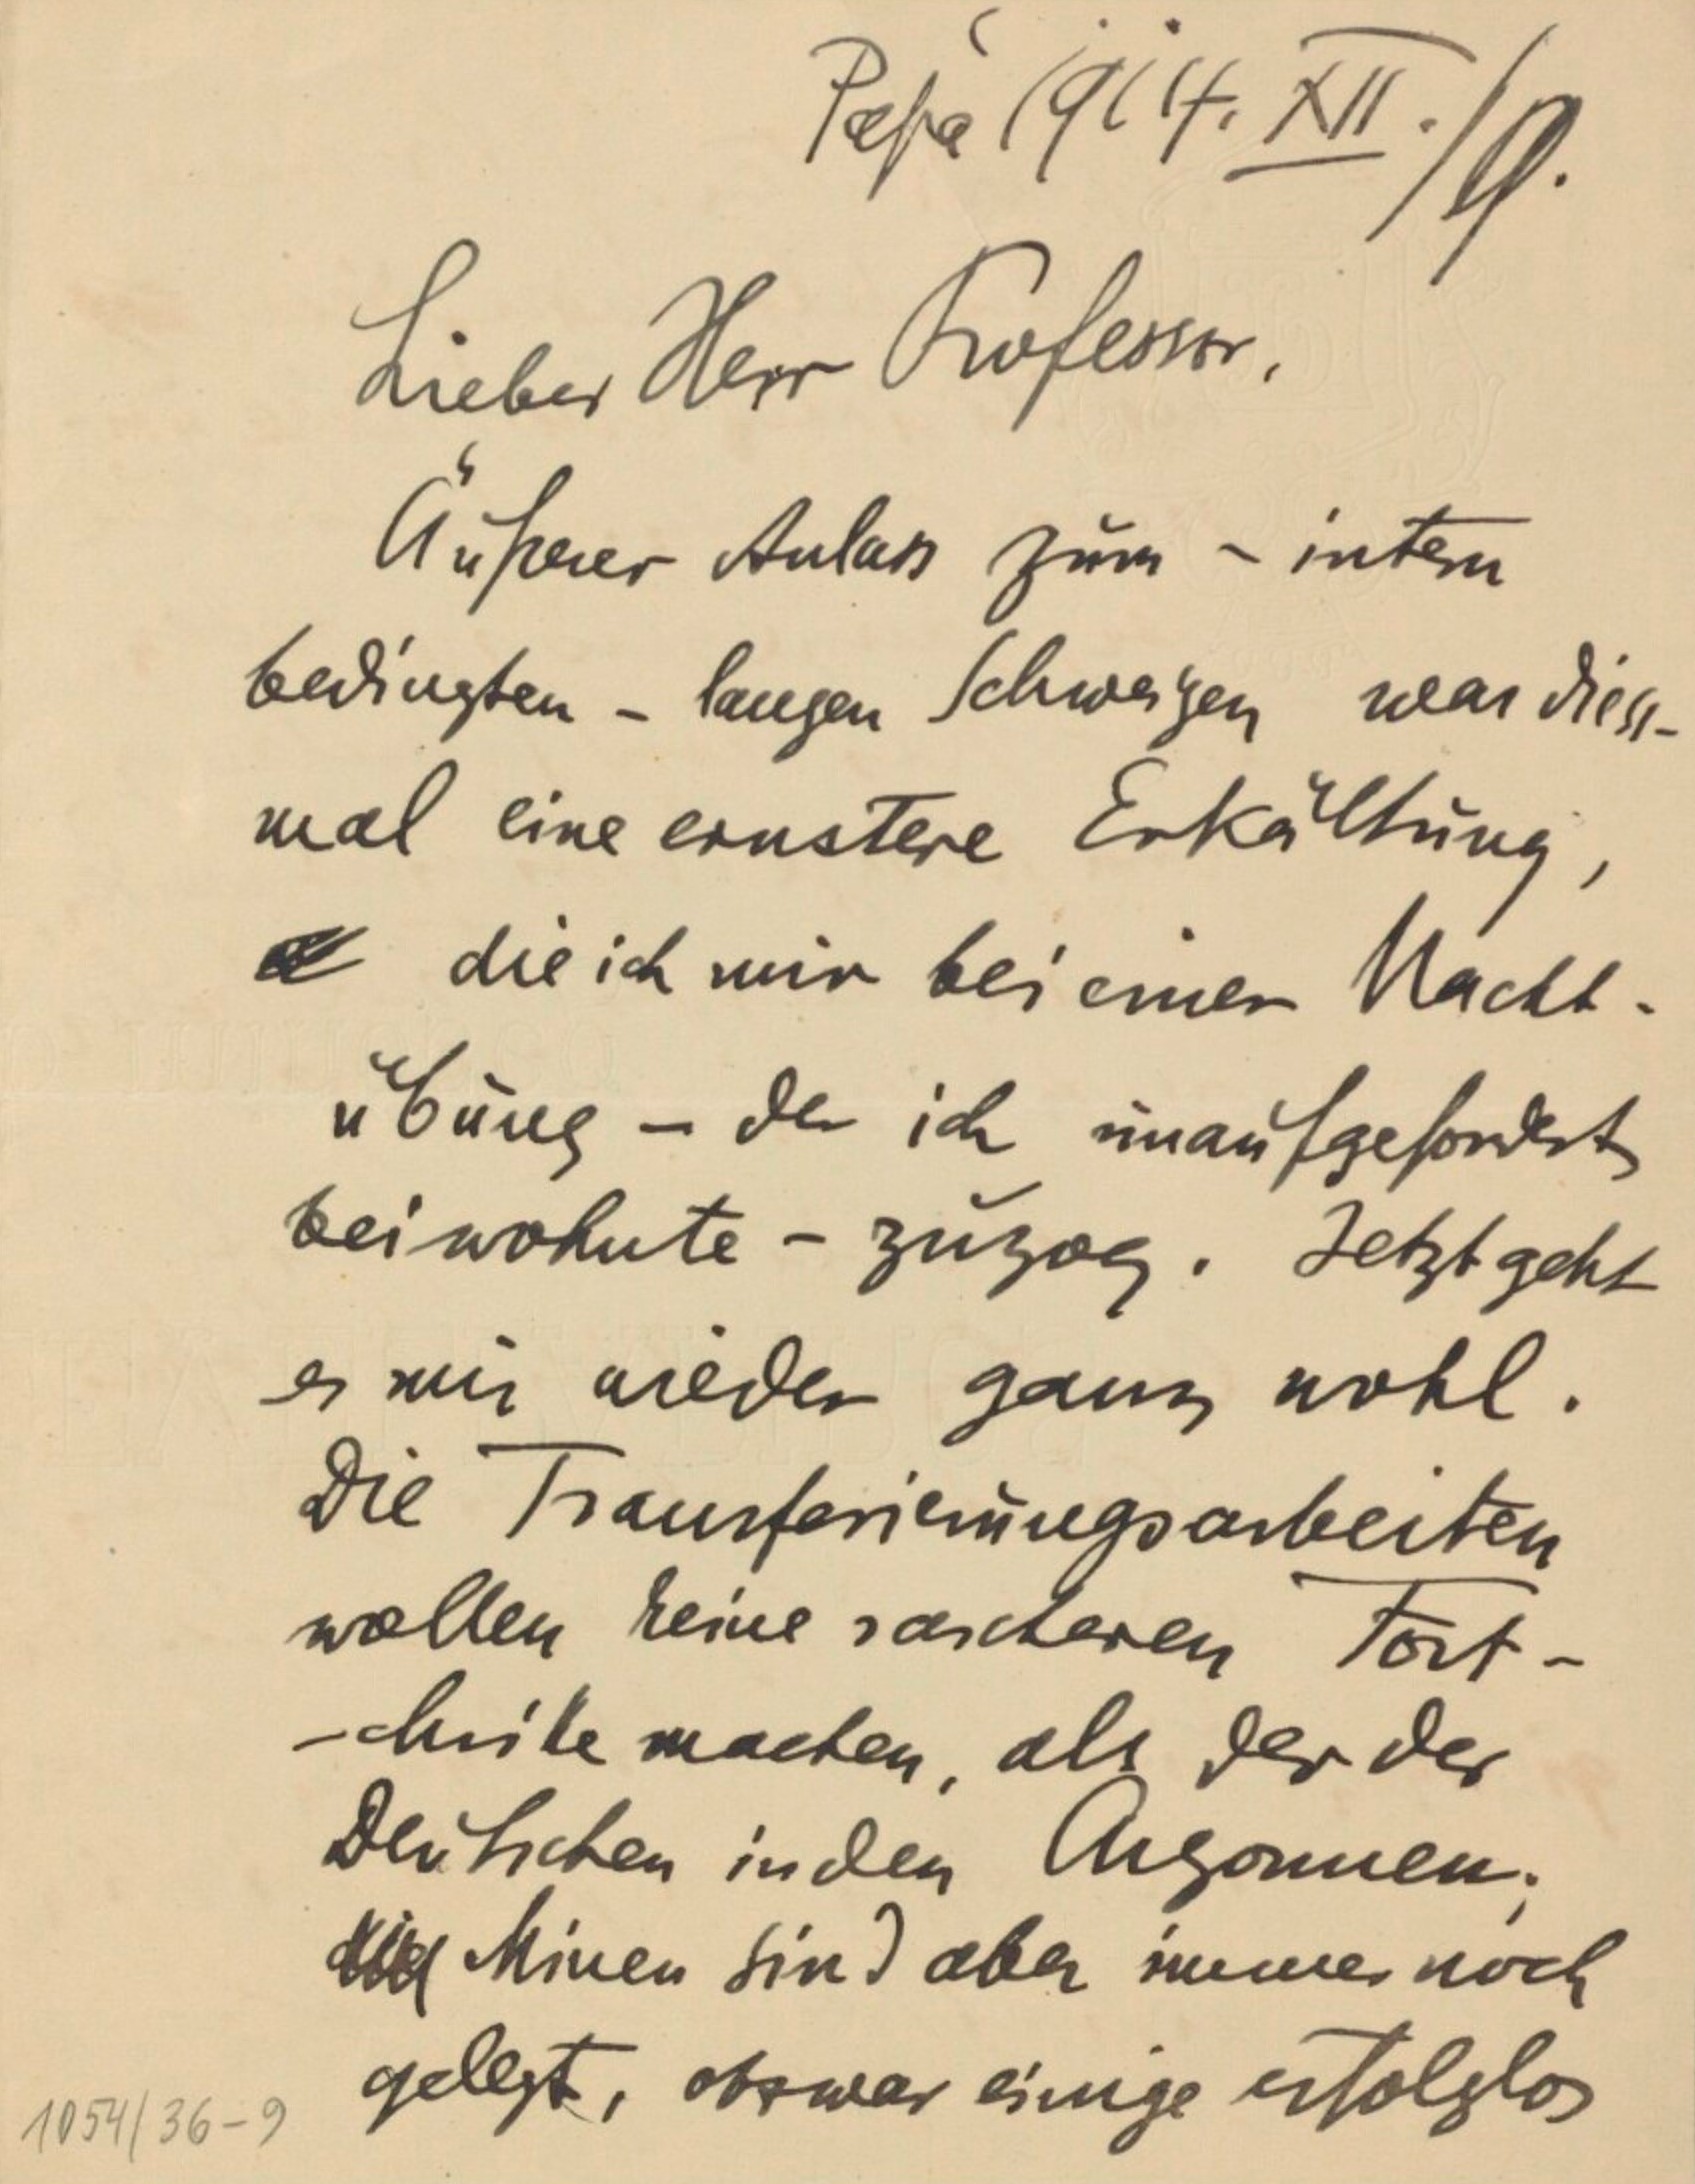 Pápa 1914. XII./9.
Lieber Herr Professor,
Äußerer Anlass zum – intern
bedingten – langen Schweigen war diess-
mal eine ernstere Erkältung,
die ich mir bei einer Nacht-
übung – der ich unaufgefordert
beiwohnte – zuzog. Jetzt geht
es mir wieder ganz wohl.
Die Transferierungsarbeiten
wollen keine rascheren Fort-
-schritte machen, als der der
Deutschen in den Argonnen;
Minen sind aber immer noch
gelegt, obzwar einige erfolglos
1054/36-9